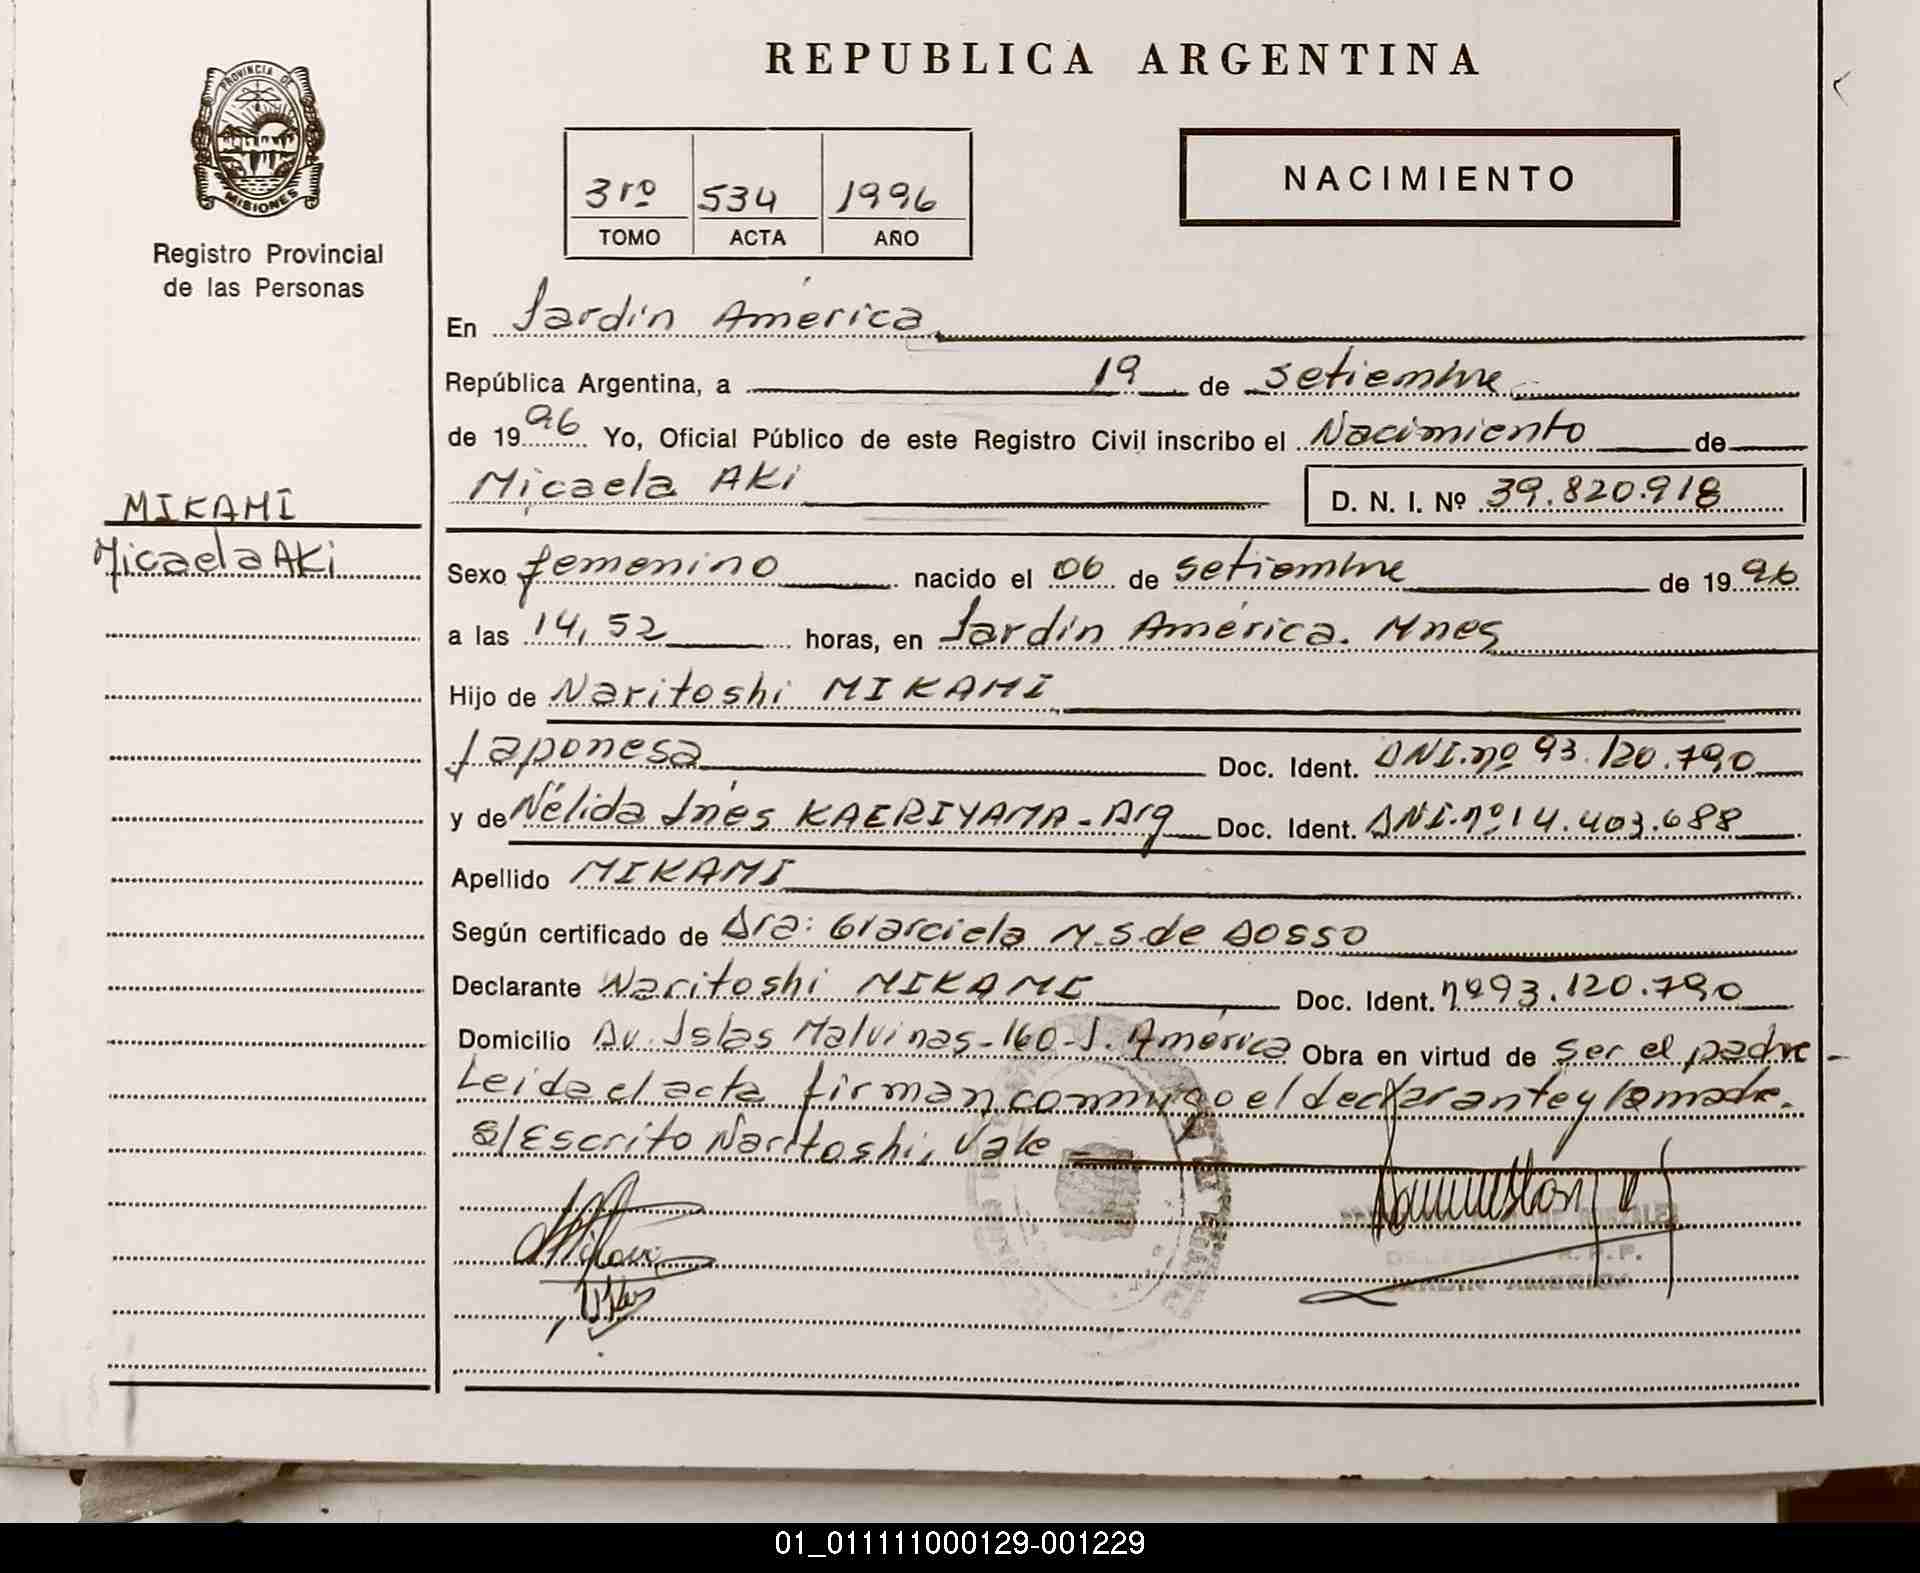 REPUBLICA ARGENTINA
PROVINCIA DE
MISIONES
Registro Provincial
de las Personas
3ro 534 1996
TOMO ACTA AÑO
NACIMIENTO
MIKAMI
Micaela Aki
En Jardín América
República Argentina, a 19 de setiembre
de 1996 Yo, Oficial Público de este Registro Civil inscribo el Nacimiento de
Micaela AKi D. N. I. Nº 39.820.918
Sexo femenino nacido el 06 de setiembre de 1996
a las 14,52 horas, en Jardín América. Mnes
Hijo de Naritoshi MIKAMI
Japonesa Doc. Ident. DNI.nº 93.120.790
y de Nélida Inés KAERIYAMA-Arg Doc. Ident. DNI.nº 14.403.688
Apellido MIKAMI
Según certificado de Dra: Grarciela M.S.de DOSSO
Declarante Naritoshi MIKAMI Doc. Ident. nº 93.120.790
Domicilio Av. Islas Malvinas-160-J. América Obra en virtud de ser el padre-
Leida el acta firman conmigo el declarante y la madre.
S/Escrito Naritoshi, Vale
JARDIN AMERICA
01_011111000129-001229